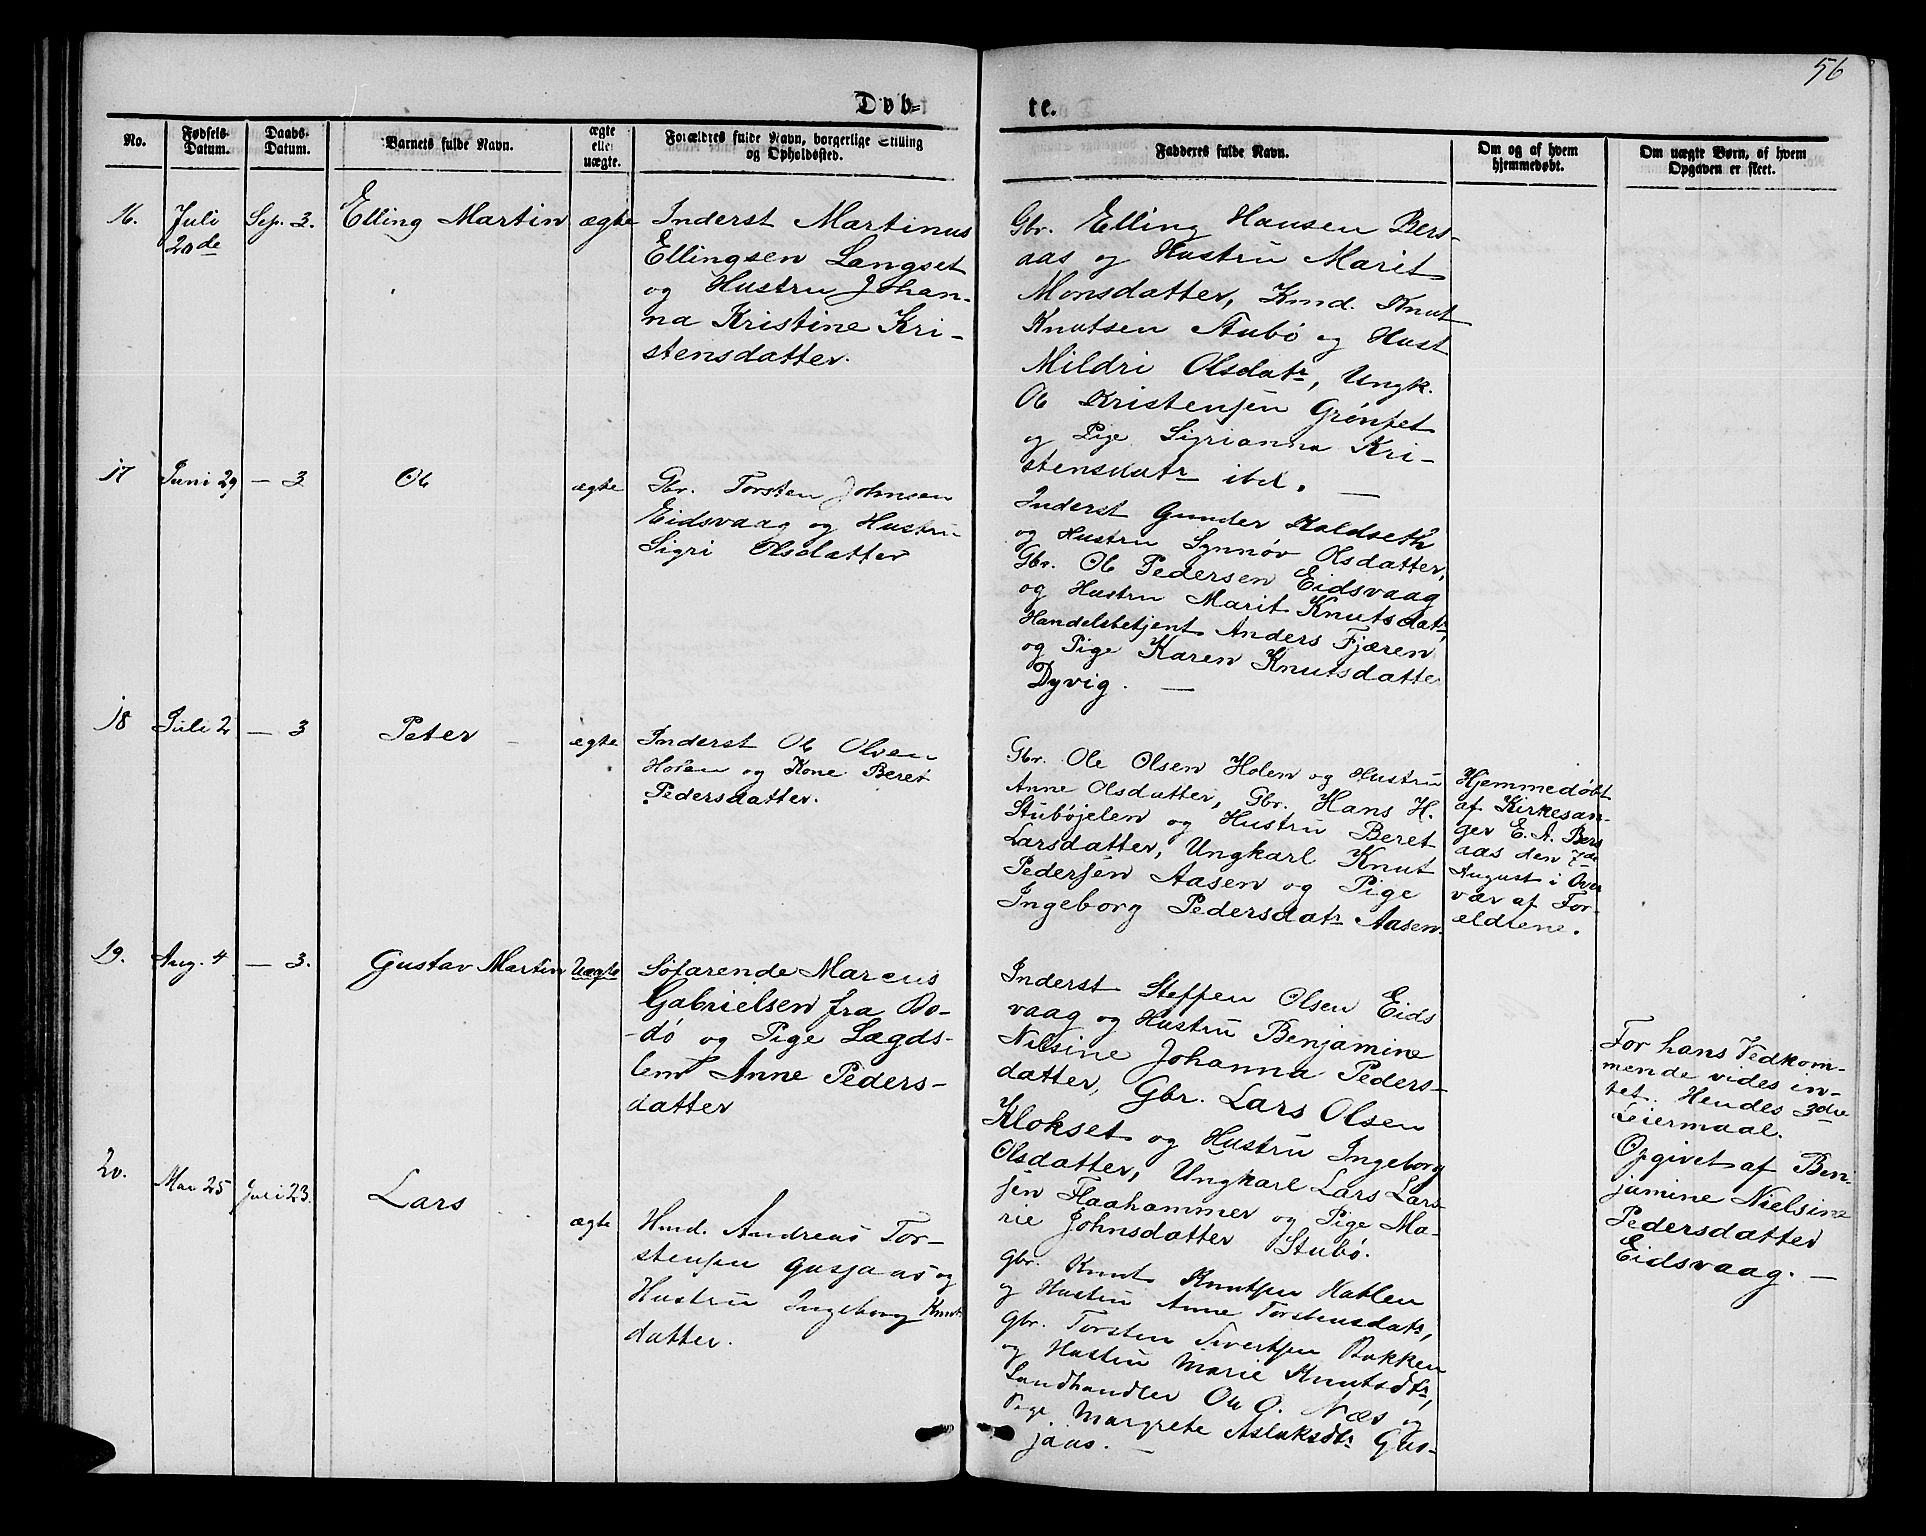 56
Døb-
te.
No.
Fødsels-
Datum.
Daabs-
Datum.
Barnets fulde Navn.
ægte
eller
uægte.
Forældres fulde Navn, borgerlige Stilling
og Opholdssted.
Fadderes fulde Navn.
Om og af hvem
hjemmedøbt.
Om uægte Børn, af hvem
Opgaven er skeet.
16.
Juli
20de
Sep. 3.
Elling Martin
ægte
Inderst Martinus
Ellingsen Langset
og Hustru Johan-
na Kristine Kri-
stensdatter.
Gbr. Elling Hansen Bers-
aas og Hustru Marit
Monsdatter, Kmd. Knut
Knutsen Stubø og Hust
Mildri Olsdatr, Ungk.
Ole Kristensen Grønset
og Pige Sigrianna Kri-
stensdatr ibd. —
17
Juni 29
— 3
Ole
ægte
Gbr. Torsten Johnsen
Eidsvaag og Hustru
Sigri Olsdatter
Inderst Gunder Koldseth
og Hustru Synnøv Olsdatter,
Gbr. Ole Pedersen Eidsvaag
og Hustru Marit Knutsdatr,
Handelsbetjent Anders Fjæren
og Pige Karen Knutsdatte
Dyvig. —
18
Juli 2
— 3
Peter
ægte
Inderst Ole Olsen
Holen og Kone Beret
Pedersdatter.
Gbr. Ole Olsen Holen og Hustru
Anne Olsdatter, Gbr. Hans H.
Stubøjelen og Hustru Beret
Larsdatter, Ungkarl Knut
Pedersen Aasen og Pige
Ingeborg Pedersdatr Aasen.
Hjemmedøbt
af Kirkesan-
ger E. A. Bers
aas den 7de
August i Over
vær af For-
ældrene.
19.
Aug. 4
— 3.
Gustav Martin
Uægte
Søfarende Marcus
Gabrielsen fra Bo-
-dø og Pige Lægds-
lem Anne Peders-
datter
Inderst Steffen Olsen Eids
vaag og Hustru Benjamine
Nilsine Johanna Peders-
datter, Gbr. Lars Olsen
Klokset og Hustru Ingeborg
Olsdatter, Ungkarl Lars Lar-
sen Flaahammer og Pige Ma-
rie Johnsdatter Stubø.
For hans Vedkom-
mende vides in-
tet. Hendes 3die
Leiermaal.
Opgivet af Ben-
jamine Nielsine
Pedersdatter
Eidsvaag. —
20.
Mai 25
Juli 23.
Lars
ægte
Hmd. Andreas Tor-
stensen Gusjaas og
Hustru Ingeborg Knuts
datter.
Gbr. Knut Knutsen Hatlen
og Hustru Anne Torstensdatr,
Gbr. Torsten Sivertsen Bakken
og Hustru Marie Knutsdtr,
Landhandler Ole O. Næs og
Pige Margrete Aslaksdtr Gus-
jaas. —